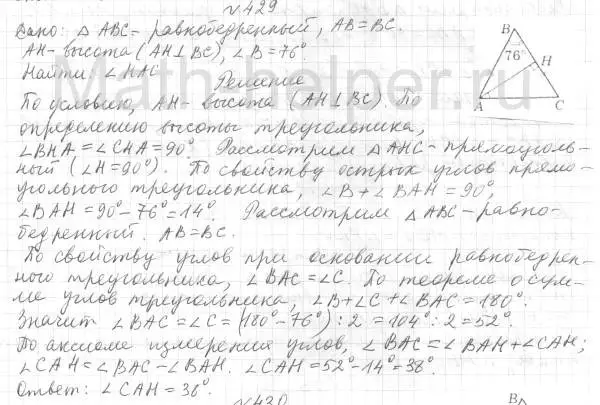 №429
Дано: △ABC - равнобедренный, AB=BC.
AH - высота (AH⊥BC), ∠B=76°.
Найти: ∠HAC
Решение
По условию, AH - высота (AH⊥BC). По
определению высоты треугольника,
∠BHA=∠CHA=90°. Рассмотрим △AHC - прямоуголь-
ный (∠H=90°). По свойству острых углов прямо-
угольного треугольника, ∠B+∠BAH=90°
∠BAH=90°-76°=14°. Рассмотрим △ABC - равно-
бедренный. AB=BC.
По свойству углов при основании равнобедрен-
ного треугольника, ∠BAC=∠C. По теореме о сум-
ме углов треугольника, ∠B+∠C+∠BAC=180°.
Значит ∠BAC=∠C=(180°-76°):2=104°:2=52°.
По аксиоме измерения углов, ∠BAC=∠BAH+∠CAH;
∠CAH=∠BAC-∠BAH. ∠CAH=52°-14°=38°.
Ответ: ∠CAH=38°.
№430
B
76°
H
A
C
B
Math-helper.ru